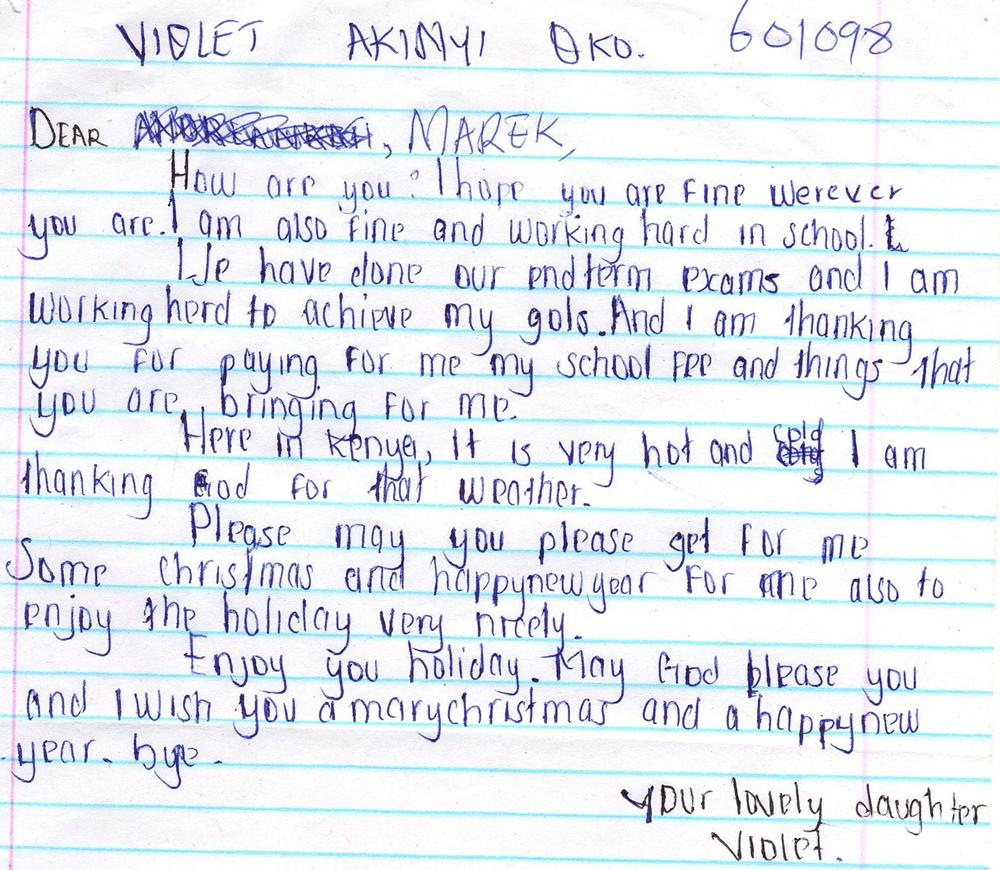 VIOLET AKINYI OKO. 601098
DEAR , MAREK,
How are you? I hope you are fine werever
you are. I am also fine and working hard in school.
We have done our endterm exams and I am
working herd to achieve my gols. And I am thanking
you for paying for me my school fee and things that
you are, bringing for me.
Here in kenya, It is very hot and cold I am
thanking God for that weather.
Please may you please get for me
Some christmas and happynewyear for me also to
enjoy the holiday very nicely.
Enjoy you holiday. May God please you
and I wish you a marychristmas and a happynew
year. bye.
your lovely daughter
Violet.